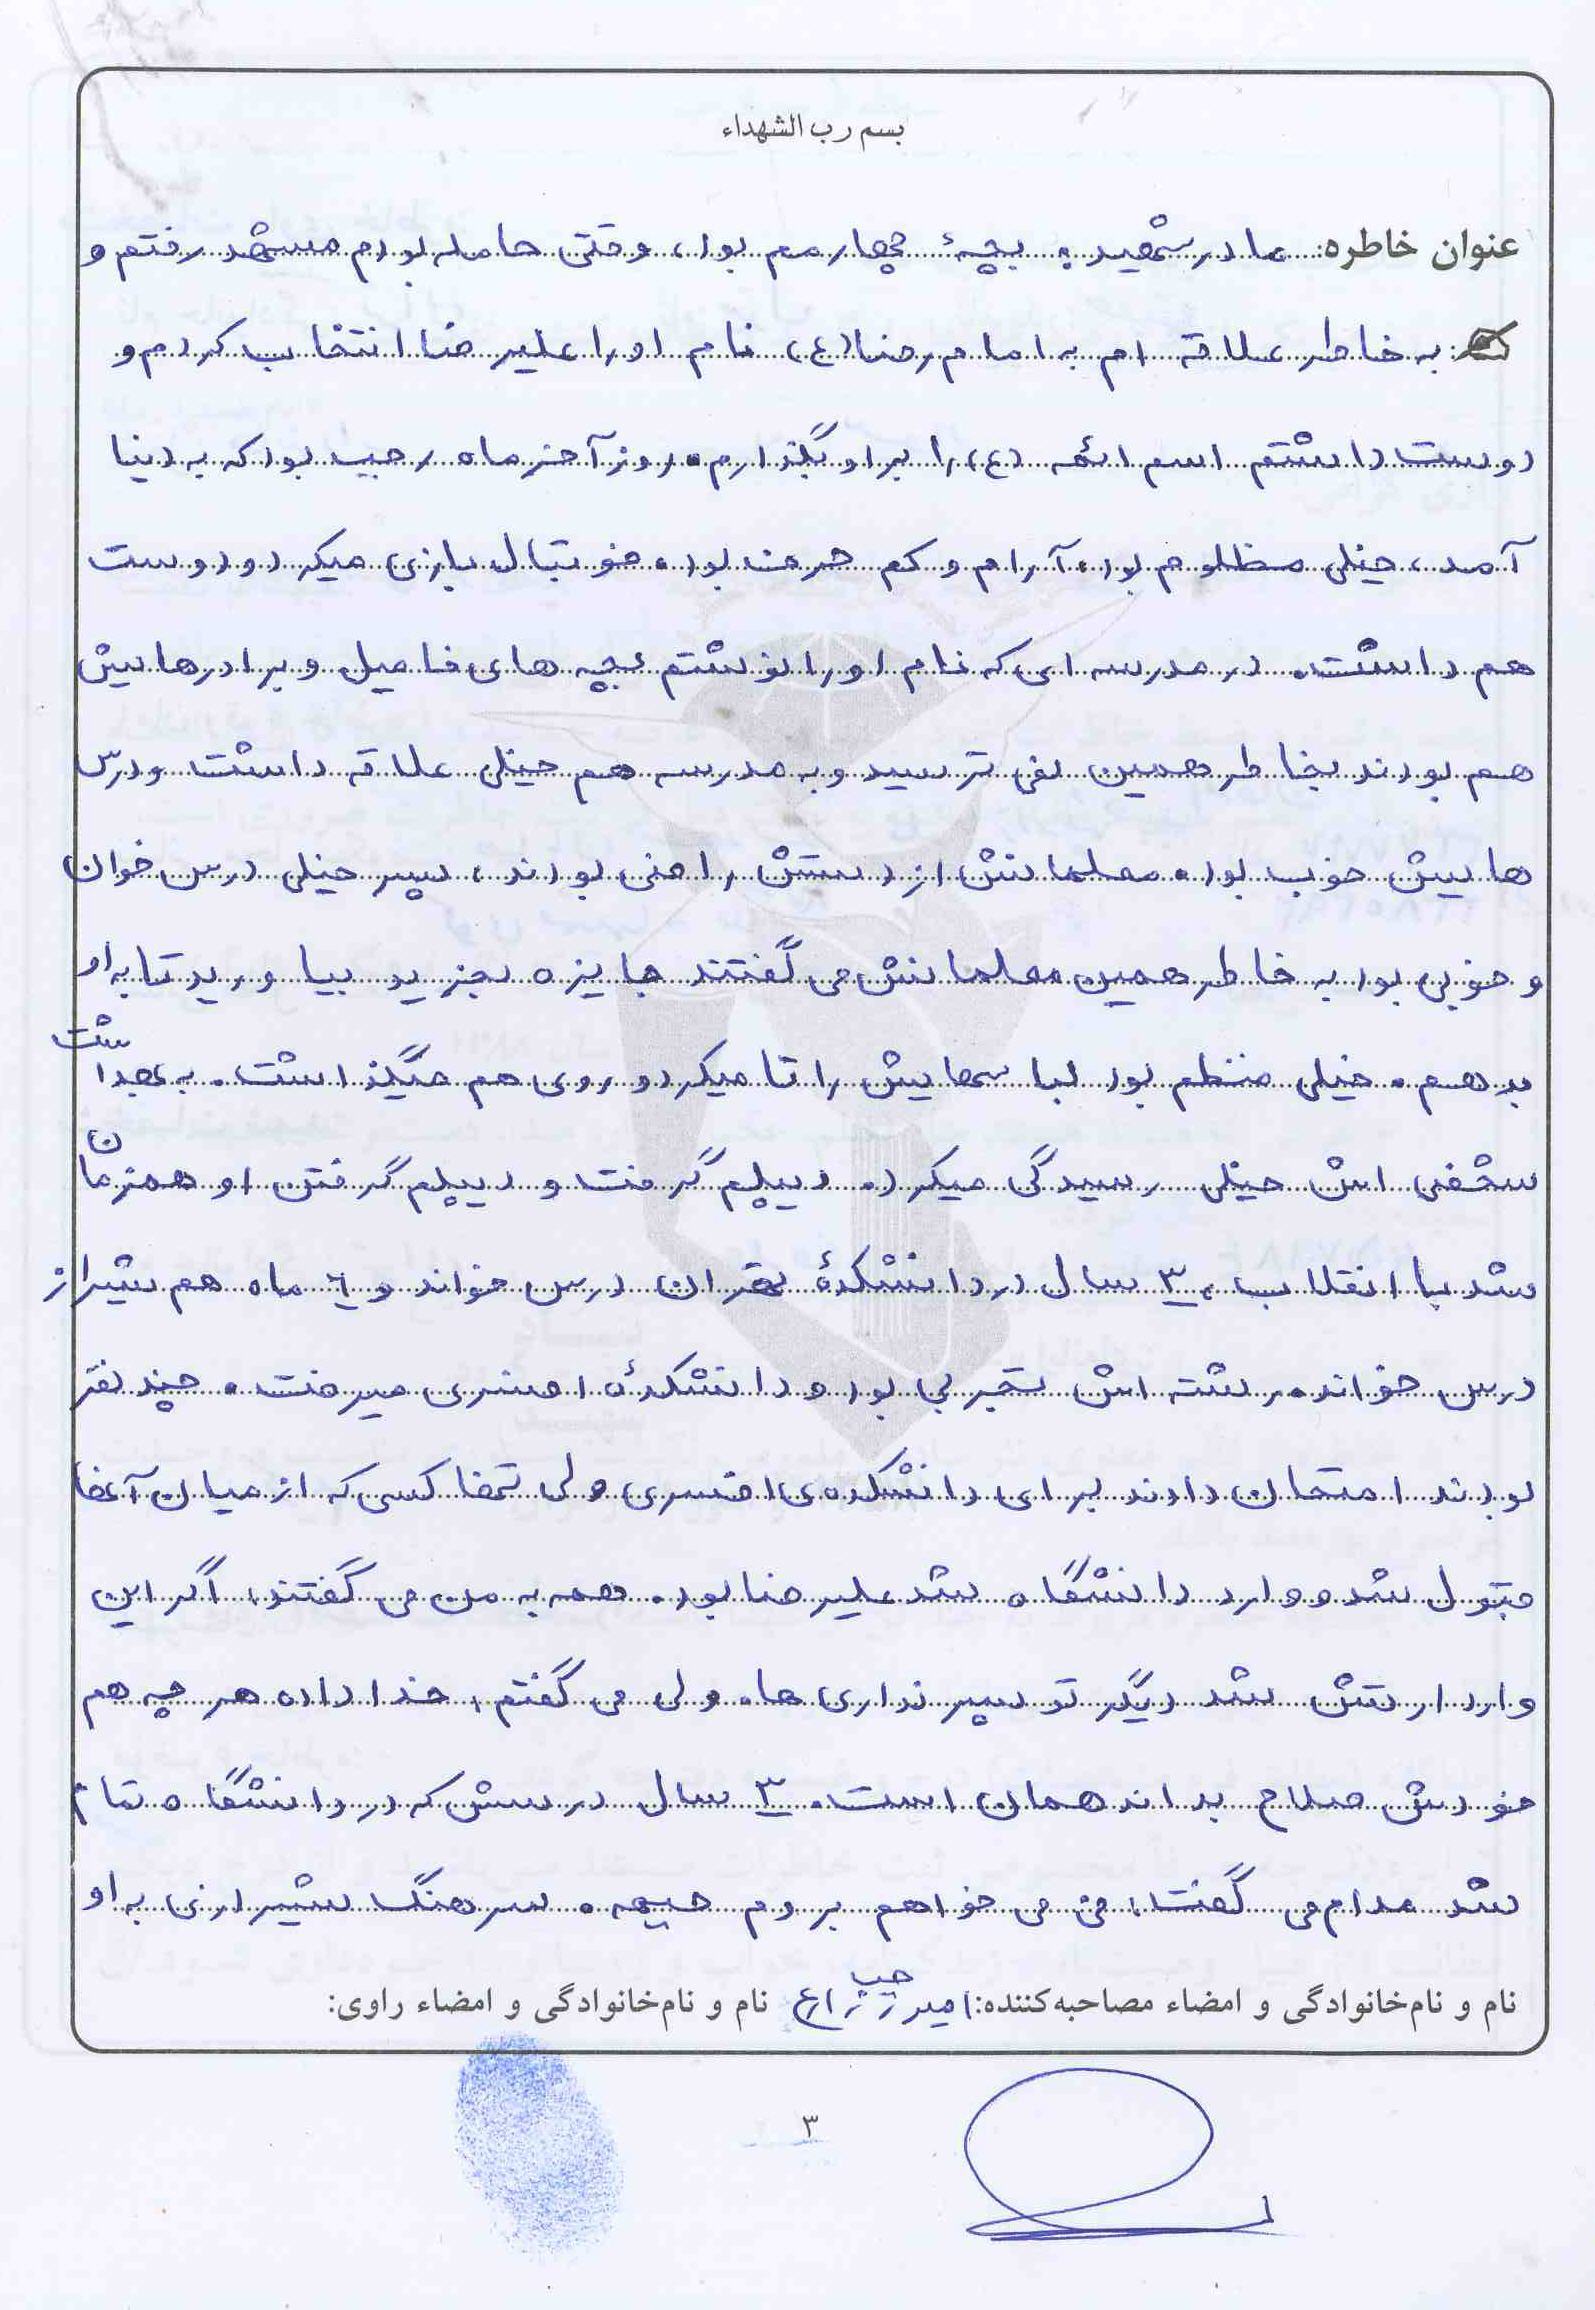 بسم رب الشهداء
عنوان خاطره: مادر شهید: بچهٔ چهارمم بود، وقتی حامله بودم مشهد رفتم و
به خاطر علاقه ام به امام رضا(ع) نام او را علیرضا انتخاب کردم و
دوست داشتم اسم ائمه (ع) را بر او بگذارم. روز آخر ماه رجب بود که به دنیا
آمد، خیلی مظلوم بود، آرام و کم حرف بود. فوتبال بازی میکرد و دوست
هم داشت. در مدرسه ای که نام او را نوشتم بچه های فامیل و برادرهایش
هم بودند بخاطر همین نمی ترسید و به مدرسه هم خیلی علاقه داشت و درس
هایش خوب بود. معلمانش از دستش راضی بودند، پسر خیلی درس خوان
و خوبی بود به خاطر همین معلمانش می گفتند جایزه بخرید بیاورید تا به او
بدهیم. خیلی منظم بود لباسهایش را تا میکرد و روی هم میگذاشت. به بهداشت
شخصی اش خیلی رسیدگی میکرد. دیپلم گرفت و دیپلم گرفتن او همزمان
شد با انقلاب، ۳ سال در دانشکدهٔ تهران درس خواند و ۶ ماه هم شیراز
درس خواند. رشته اش تجربی بود و دانشکدهٔ افسری میرفت. چند نفر
بودند امتحان دادند برای دانشکده ی افسری ولی تنها کسی که از میان آنها
قبول شد و وارد دانشگاه شد علیرضا بود. همه به من می گفتند، اگر این
وارد ارتش شد دیگر تو پسر نداری ها. ولی می گفتم، خدا داده هر چه هم
خودش صلاح بداند همان است. ۳ سال درسش که در دانشگاه تمام
شد مدام می گفت، من می خواهم بروم جبهه. سرهنگ شیرازی به او
نام و نام‌خانوادگی و امضاء مصاحبه‌کننده: نام و نام‌خانوادگی و امضاء راوی:
۳